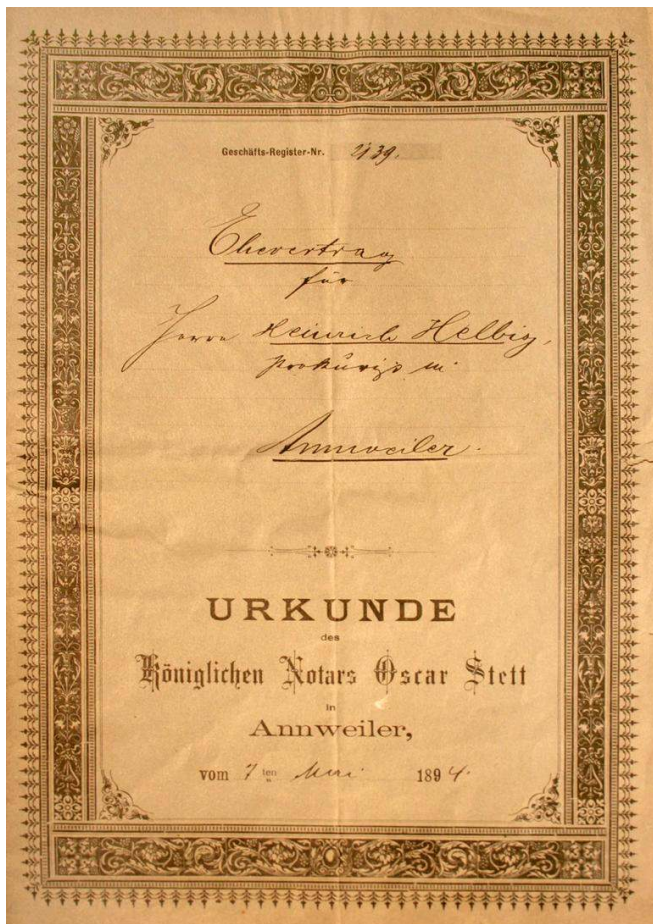 Geschäfts-Register-Nr. 439.
Ehevertrag
für
Herrn Heinrich Helbig,
Prokurist in
Annweiler.
URKUNDE
des
Königlichen Notars Oscar Stett
in
Annweiler,
vom 7ten Mai 1894.